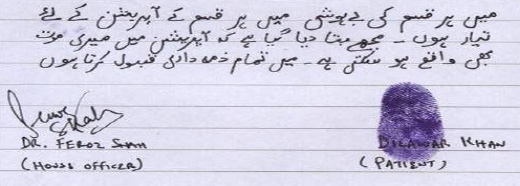 میں ہر قسم کی بے ہوشی میں ہر قسم کے آپریشن کے لئے
تیار ہوں ۔ مجھے بتا دیا گیا ہے کہ آپریشن میں میری موت
بھی واقع ہو سکتی ہے ۔ میں تمام ذمہ داری قبول کرتا ہوں
DR. FEROZ SHAH
(HOUSE OFFICER)
DILAWAR KHAN
(PATIENT)